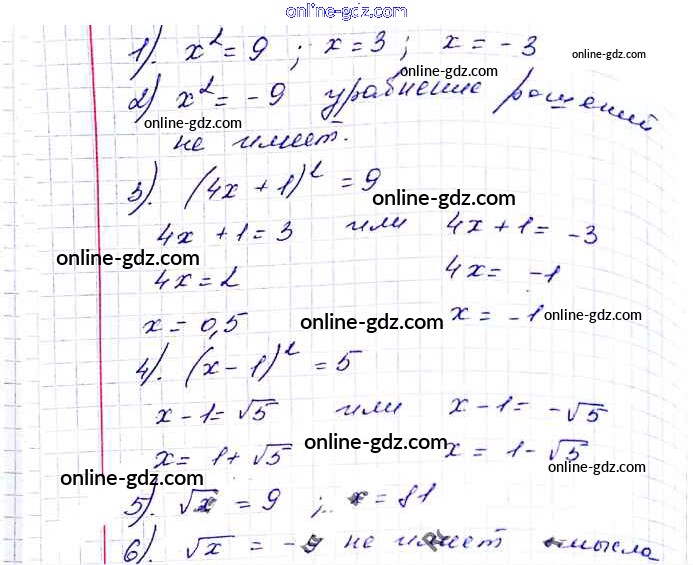 online-gdz.com
1). x² = 9 ; x = 3 ; x = -3
online-gdz.com
online-gdz.com
2) x² = -9 уравнение решений
online-gdz.com
не имеет.
3). (4x + 1)² = 9
online-gdz.com
4x + 1 = 3 или 4x + 1 = -3
online-gdz.com
4x = 2 4x = -1
x = 0,5 x = -1
online-gdz.com
online-gdz.com
4). (x - 1)² = 5
x - 1 = √5 или x - 1 = -√5
online-gdz.com
x = 1 + √5 x = 1 - √5
online-gdz.com
online-gdz.com
5). √x = 9 ; x = 81
online-gdz.com
6). √x = -9 не имеет смысла